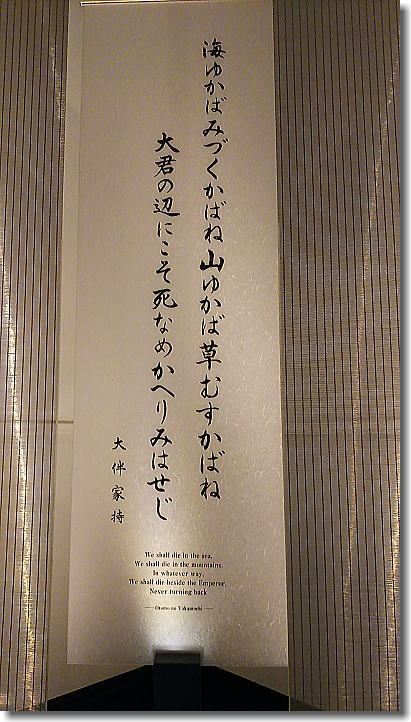 海ゆかばみづくかばね山ゆかば草むすかばね
大君の辺にこそ死なめかへりみはせじ
大伴家持
We shall die in the sea,
We shall die in the mountains.
In whatever way,
We shall die beside the Emperor,
Never turning back
— Otomo no Yakamochi —